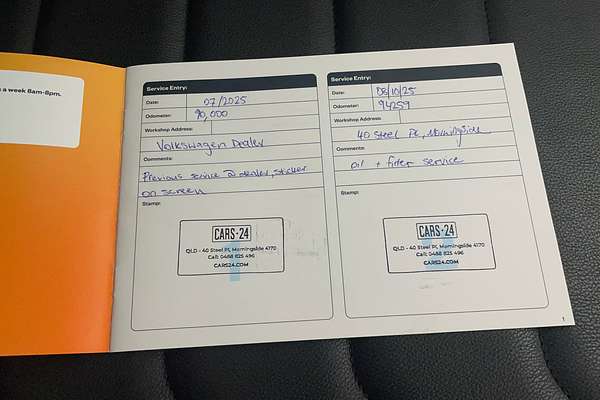 s a week 8am-8pm.
Service Entry:
Date: 07/2025
Odometer: 90,000
Workshop Address:
Volkswagen Dealer
Comments:
Previous service @ dealer, sticker
on screen
Stamp:
CARS·24
QLD - 40 Steel Pl, Morningside 4170
Call: 0488 825 496
CARS24.COM
Service Entry:
Date: 08/10/25
Odometer: 94259
Workshop Address:
40 Steel PL, Morningside
Comments:
oil + filter service
Stamp:
CARS·24
QLD - 40 Steel Pl, Morningside 4170
Call: 0488 825 496
CARS24.COM
1